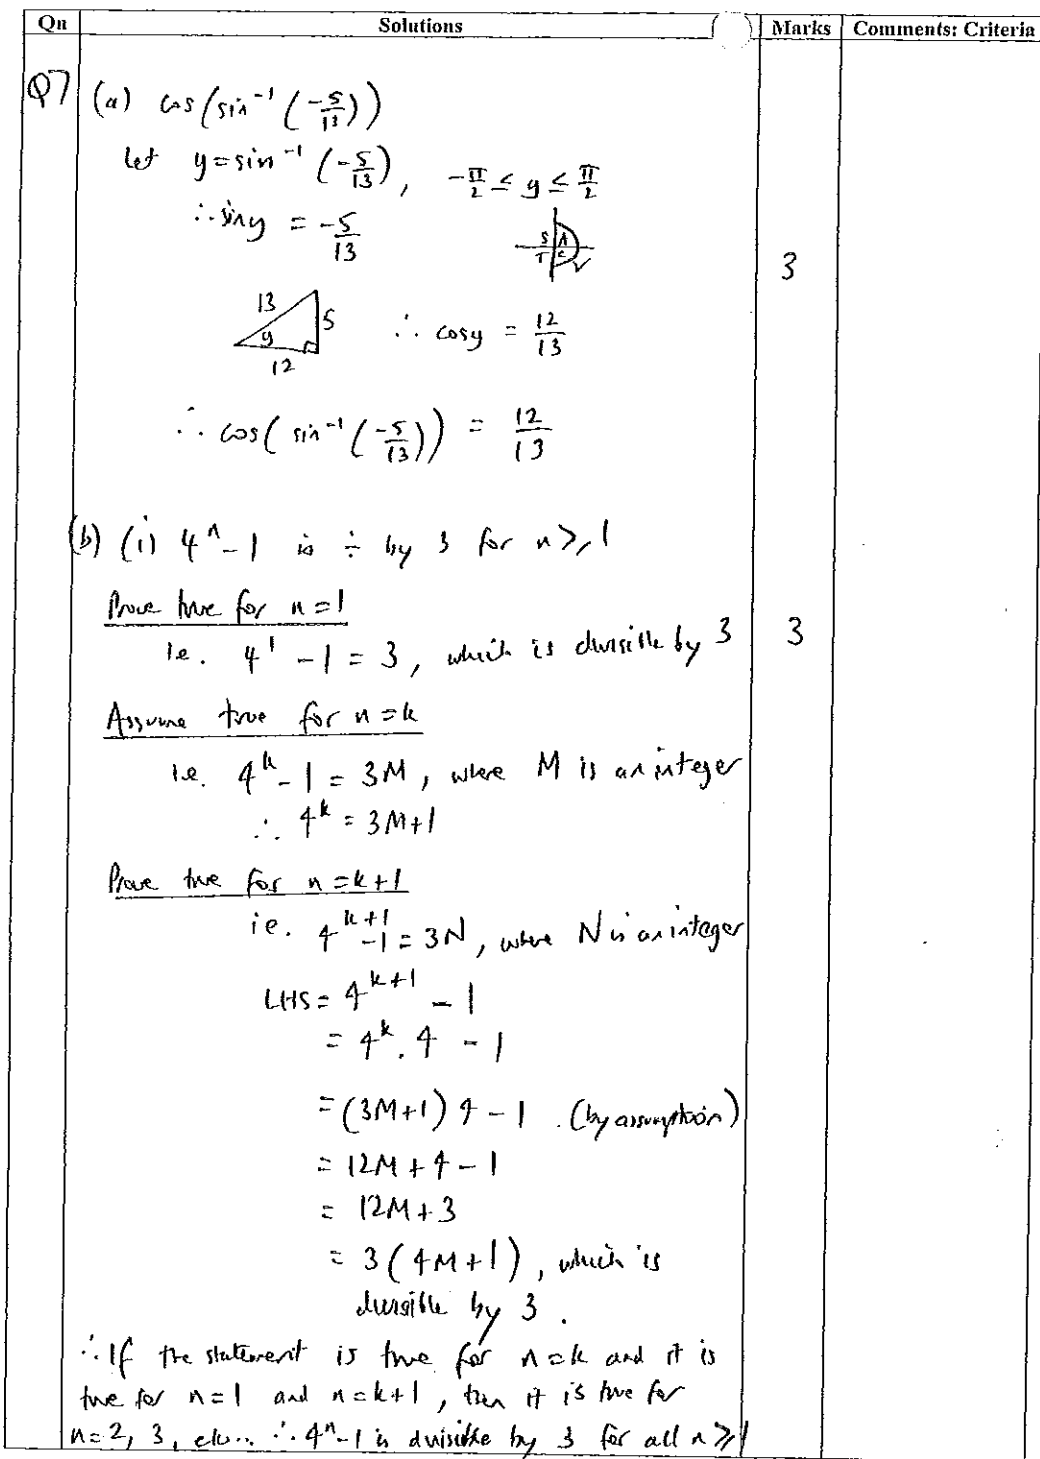 Qn Solutions Marks Comments: Criteria
Q7 (a) cos(sin⁻¹(-5/13))
let y = sin⁻¹(-5/13), -π/2 ≤ y ≤ π/2
∴ sin y = -5/13
S A
T C ✓
3
13 5
y
12
∴ cos y = 12/13
∴ cos(sin⁻¹(-5/13)) = 12/13
(b) (i) 4ⁿ - 1 is ÷ by 3 for n ≥ 1
Prove true for n = 1
ie. 4¹ - 1 = 3, which is divisible by 3
3
Assume true for n = k
ie. 4ᵏ - 1 = 3M, where M is an integer
∴ 4ᵏ = 3M+1
Prove true for n = k+1
ie. 4ᵏ⁺¹ - 1 = 3N, where N is an integer
LHS = 4ᵏ⁺¹ - 1
= 4ᵏ. 4 - 1
= (3M+1) 4 - 1 (by assumption)
= 12M + 4 - 1
= 12M + 3
= 3(4M+1), which is
divisible by 3.
∴ If the statement is true for n = k and it is
true for n = 1 and n = k+1, then it is true for
n = 2, 3, etc... ∴ 4ⁿ-1 is divisible by 3 for all n ≥ 1